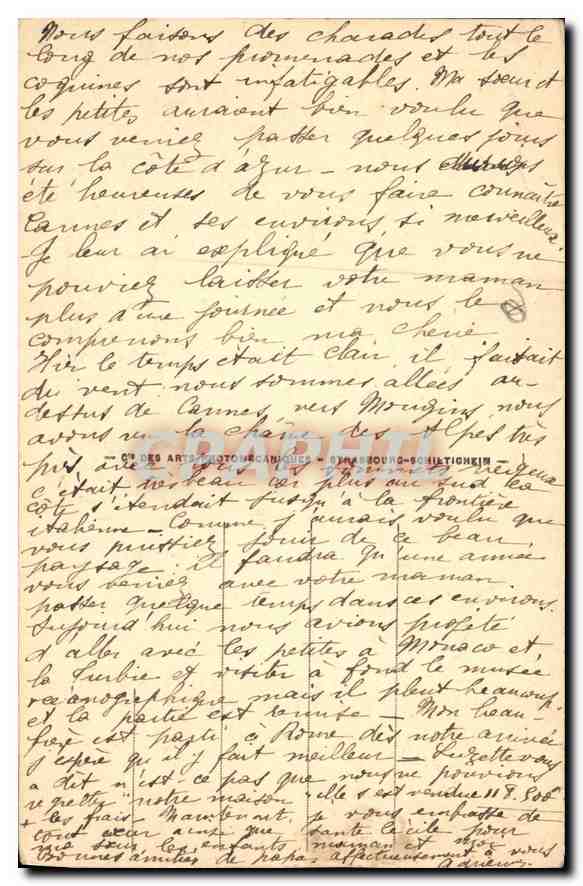 Nous faisons des charades tout le
long de nos promenades et les
coquines sont infatigables. Ma sœur et
les petites auraient bien voulu que
vous veniez passer quelques jours
sur la côte d'azur - nous
été heureuses de vous faire connaître
Cannes et ses environs si merveilleux.
Je leur ai expliqué que vous ne
pouviez laisser votre maman
plus d'une journée et nous le
comprenons bien ma chérie
Hier le temps était clair il faisait
du vent nous sommes allées au-
dessus de Cannes vers Mougins, nous
avons vu la chaîne des Alpes très
près, avec
CIE DES ARTS PHOTOMECANIQUES - STRASBOURG-SCHILTIGHEIM
c'était très beau car plus au sud la
côte s'étendait jusqu'à la frontière
italienne - Comme j'aurais voulu que
vous puissiez jouir de ce beau
paysage. il faudra qu'une année
vous veniez avec votre maman
passer quelque temps dans ces environs.
Aujourd'hui nous avions projeté
d'aller avec les petites à Monaco et
la Turbie et visiter à fond le musée
océanographique mais il pleut beaucoup
et la partie est remise - Mon beau-
frère est parti à Rome dès notre arrivée
j'espère qu'il y fait meilleur - Suzette vous
a dit n'est ce pas que nous ne pouvions
regretter notre maison elle s'est vendue 118.500f
+ les frais - Maintenant, je vous embrasse de
tout cœur ainsi que tante Cécile pour
ma sœur les enfants maman et moi
bonnes amitiés de papa, affectueusement à vous